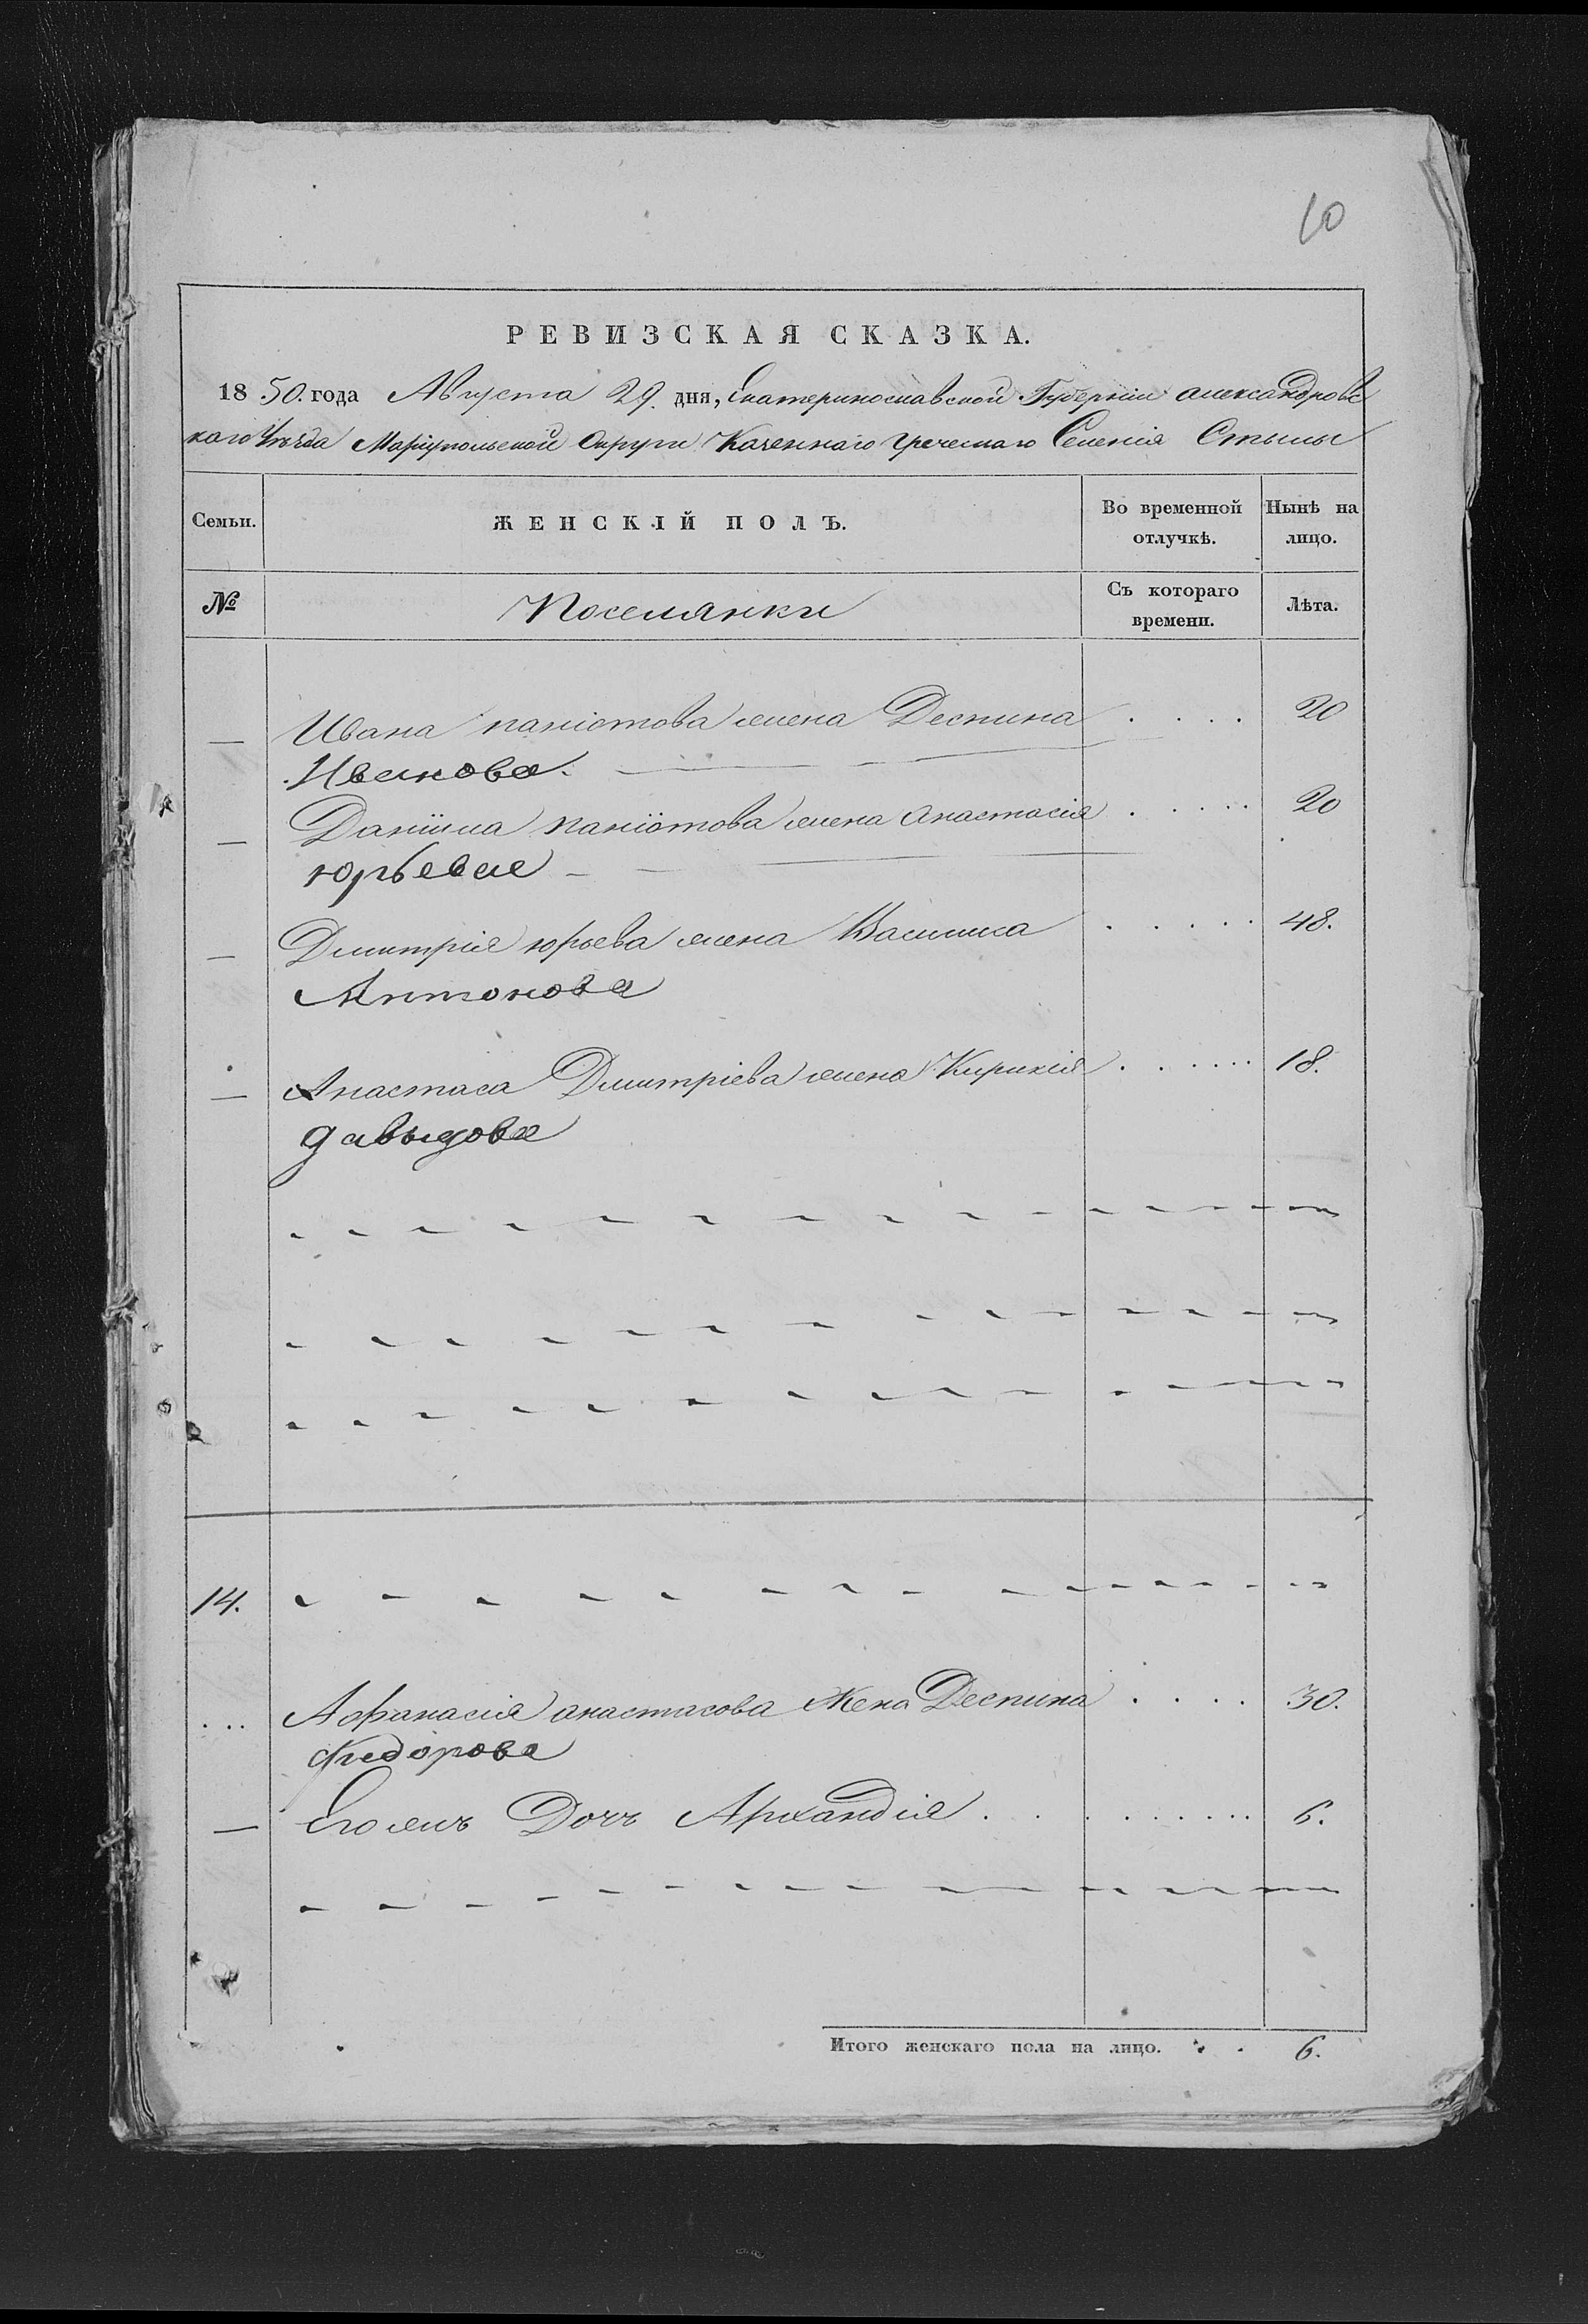 10
РЕВИЗСКАЯ СКАЗКА.
1850. года Августа 29. дня, Екатеринославской Губерніи александровс
каго Уѣзда Маріупольской Округи Казеннаго греческаго Селенія Стылы
Семьи. ЖЕНСКІЙ ПОЛЪ. Во временной отлучкѣ. Нынѣ на лицо.
№ Поселянки Съ котораго времени. Лѣта.
— Ивана паніотова жена Деспина . . . . 20
Иванова.
— Даніила паніотова жена анастасія . . . . . 20
юрьева
— Дмитрія юрьева жена Василиса . . . . . 48.
Антонова
— Анастаса Дмитріева жена Кирикія . . . . . . 18.
давыдова
14.
... Афанасія анастасова Жена Деспина . . . . 30.
Фидорова
— Его жъ Дочь Архандія . . . . . . . . . 6.
Итого женскаго пола на лицо. . . 6.